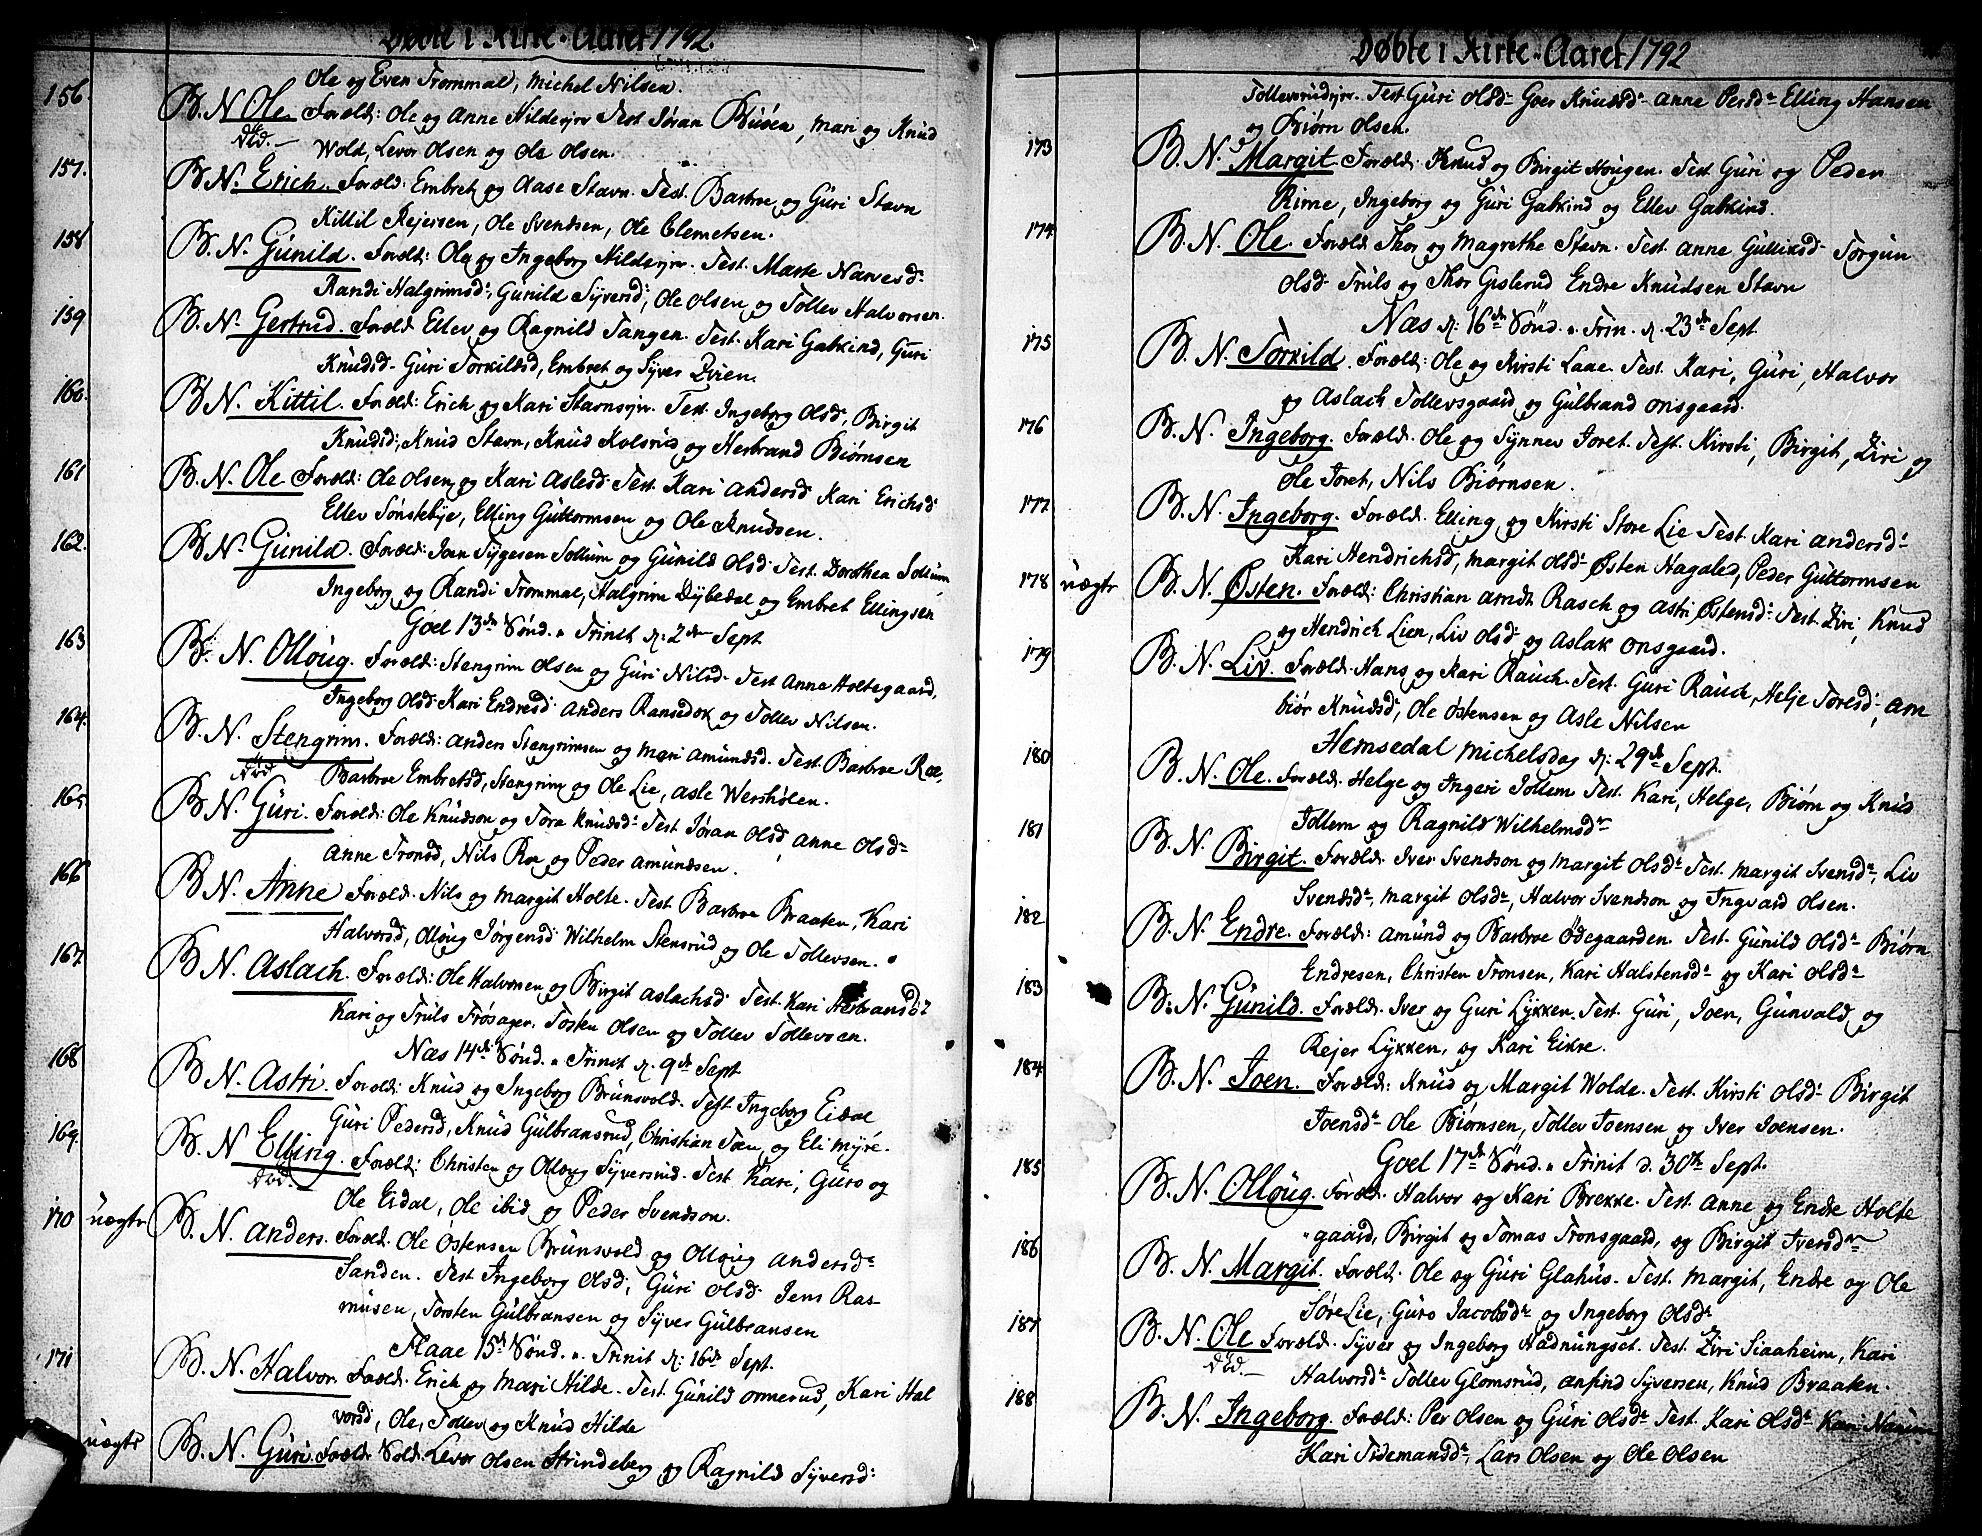 Døbte i Kirke-Aaret 1792.
Ole og Even Trommal, Michel Nilsen.
156. B. N. Ole. Foræld: Ole og Anne Hildeeyer Test. Jøran Búsen, Mari og Knúd
død.- Wold, Levor Olsen og Ole Olsen.
157. B. N. Erich. Foræld: Embret og Aase Stavn. Test. Barbroe og Gúri Stavn
Kittil Rejersen, Ole Svendsen, Ole Clemetsen.
158 B. N. Gúnild. Foræld: Ole og Ingeborg Hildeeyer. Test. Marte Narvesd:
Randi Halgrimsd:, Gúnild Syversd:, Ole Olsen og Tollev Halvorsen.
159 B. N. Gertrud. Foræld: Ellev og Ragnild Tangen. Test. Kari Gabkind, Gúri
Knúdsd- Gúri Torkildsd, Embret og Syver Zvien.
160. B. N. Kittil. Foræld: Erich og Kari Stavnseyer. Test. Ingeborg Olsd, Birgit
Knúdsd:, Knúd Stavn, Knúd Kolsrúd og Herbrand Biørnsen
161 B. N. Ole Foræld: Ole Olsen og Kari Aslesd. Test. Kari Andersd Kari Erichsd
Ellev Sønstebye, Elling Gúttormsen og Ole Knudsen.
162. B. N. Gúnild. Foræld: Joen Tygesen Sollúm og Gúnild Olsd. Test. Dorothea Sollúm
Ingeborg og Randi Trommal, Halgrim Dybedal og Embret Ellingsen
Goel 13de Sønd. " Trinit d: 2den Sept
163 B. N. Olloúg. Foræld: Stengrim Olsen og Gúri Nilsd. Test Anne Holtegaard,
Ingeborg Olsd. Kari Endresd. Anders Ransedok og Tollev Nilsen.
164. B. N. Stengrim. Foræld: Anders Stengrimsen og Mari Amúndsd. Test. Barbroe Roe,
død Barbroe Embretsd, Stengrim og Ole Lie, Asle Wershølen.
165. B. N. Gúri. Foræld: Ole Knúdson og Tora Knúdsd: Test Jøran Olsd Anne Olsd:
Anne Tronsd, Nils Roe og Peder Amúndsen.
166 B. N. Anne Foræld. Nils og Margit Holte. Test Barbroe Braaten, Kari
Halvorsd, Olloúg Jørgensd. Wilhelm Stensrúd og Ole Tollevsen.
167. B. N. Aslach. Foræld: Ole Halvorsen og Birgit Aslachsd. Test. Kari Herbrandsd:
Kari og Trúls Frøsager. Tosten Olsen og Tollev Tollevsen.
Næs 14de Sønd. " Trinit d. 9de Sept
168 B. N. Astri. Foræld: Knúd og Ingeborg Brúnsvold. Test Ingeborg Eidal
Gúri Pedersd, Knúd Gúlbransrúd, Christian Toen og Eli Myre.
169. B. N Elling. Foræld: Christen og Olloúg Syversrúd. Test Kari, Gúro og
død.- Ole Eidal, Ole ibid og Peder Svendson.
170 uægte B. N. Anders. Foræld. Ole Østensen Brúnsvold og Olloúg Andersd:
Sanden. Test Ingeborg Olsd, Gúri Olsd. Jens Ras-
músen, Torsten Gúlbransen og Syver Gúlbransen
Flaae 15de Sønd. ". Trinit d: 16de Sept.
171 B. N. Halvor. Foræld. Erich og Mari Hilde. Test. Gúnild Ormerud, Kari Hal
vorsd, Ole, Tollev og Knúd Hilde
uægte B. N. Gúri. Foræld. Sold. Levor Olsen Strindeberg og Ragnild Syversd:
Døbte i Kirke-Aaret 1792
Tollevsrudeyer. Test Gúri Olsd- Goer Knúdsd- Anne Persd- Elling Hansen
og Biørn Olsen.
173 B. N. Margit Foræld: Knúd og Birgit Hougen. Test Gúri og Peder
Rime, Ingeborg og Gúri Gabkind og Ellev Gabkind.
174 B. N. Ole. Foræld. Thor og Magrethe Stavn. Test. Anne Gúlliksd- Torgún
Olsd. Trúls og Thor Gislerud Endre Knúdsen Stavn
Næs d: 16de Sønd. " Trin. d. 23de Sept.
175 B. N. Torkild. Foræld: Ole og Kirsti Laae. Test. Kari, Gúri, Halvor
og Aslach Tollevsgaard og Gúlbrand Onsgaard.
176 B. N. Ingeborg. Foræld. Ole og Synnev Joret. Test. Kirsti, Birgit, Ziri og
Ole Joret, Nils Biørnsen.
177. B. N. Ingeborg. Foræld. Elling og Kirsti Store Lie Test Kari Andersd:
Kari Hendrichsd, Margit Olsd. Østen Hagaled, Peder Gúttormsen
178 uægte B. N. Østen. Foræld: Christian Arndt Rasch og Astri Østensd: Test. Ziri, Knud
og Hendrich Lien, Liv Olsd. og Aslak Onsgaard.
179 B. N. Liv. Foræld. Hans og Kari Rauch. Test. Gúri Raúch, Helje Toresd:, Am
biør Knúdsd, Ole Østensen og Asle Nilsen
Hemsedal Michelsdag d: 29de Sept.
180 B. N. Ole. Foræld. Helge og Ingeri Tollem Test. Kari, Helge, Biørn og Knúd
Tollem og Ragnild Wilhelmsdr
181 B. N. Birgit. Foræld. Iver Svendson og Margit Olsdr Test. Margit Svensdr, Liv
Svendsdr, Margit Olsdr, Halvor Svendson og Ingvard Olsen.
182 B. N. Endre. Foræld: Amúnd og Barbroe Ødegaarden. Test. Gúnild Olsdr Biørn
Endresen, Christen Tronsen, Kari Halstensdr og Kari Olsdr
183 B. N. Gúnild. Foræld. Iver og Guri Lykken. Test. Gúri, Joen, Gúnvald og
Rejer Lykken, og Kari Eikre.
184 B. N. Joen. Foræld: Knúd og Margit Wolde. Test. Kirsti Olsd- Birgit
Joensdr Ole Biørnsen, Tollev Joensen og Iver Joensen.
Goel 17de Sønd. " Trinit d. 30te Sept.
185 B. N. Olloúg. Foræld. Halvor og Kari Brekke. Test. Anne og Endre Holte
"gaard, Birgit og Tomas Tronsgaard, og Birgit Iversdr
186 B. N. Margit. Foræld. Ole og Gúri Glahús. Test. Margit, Endre og Ole
SøreLie, Gúro Jacobsdr og Ingeborg Olsdr
187 B. N. Ole Foræld. Syver og Ingeborg Hadnúngset. Test. Ziri Siaaheim, Kari
død.- Halvorsdr Tollev Glomsrúd, Anfind Syversen, Knúd Braaten.
188 B. N. Ingeborg. Foræld: Per Olsen og Gúri Olsdr Test. Kari Olsdr
Kari Tidemandsdr, Lars Olsen og Ole Olsen